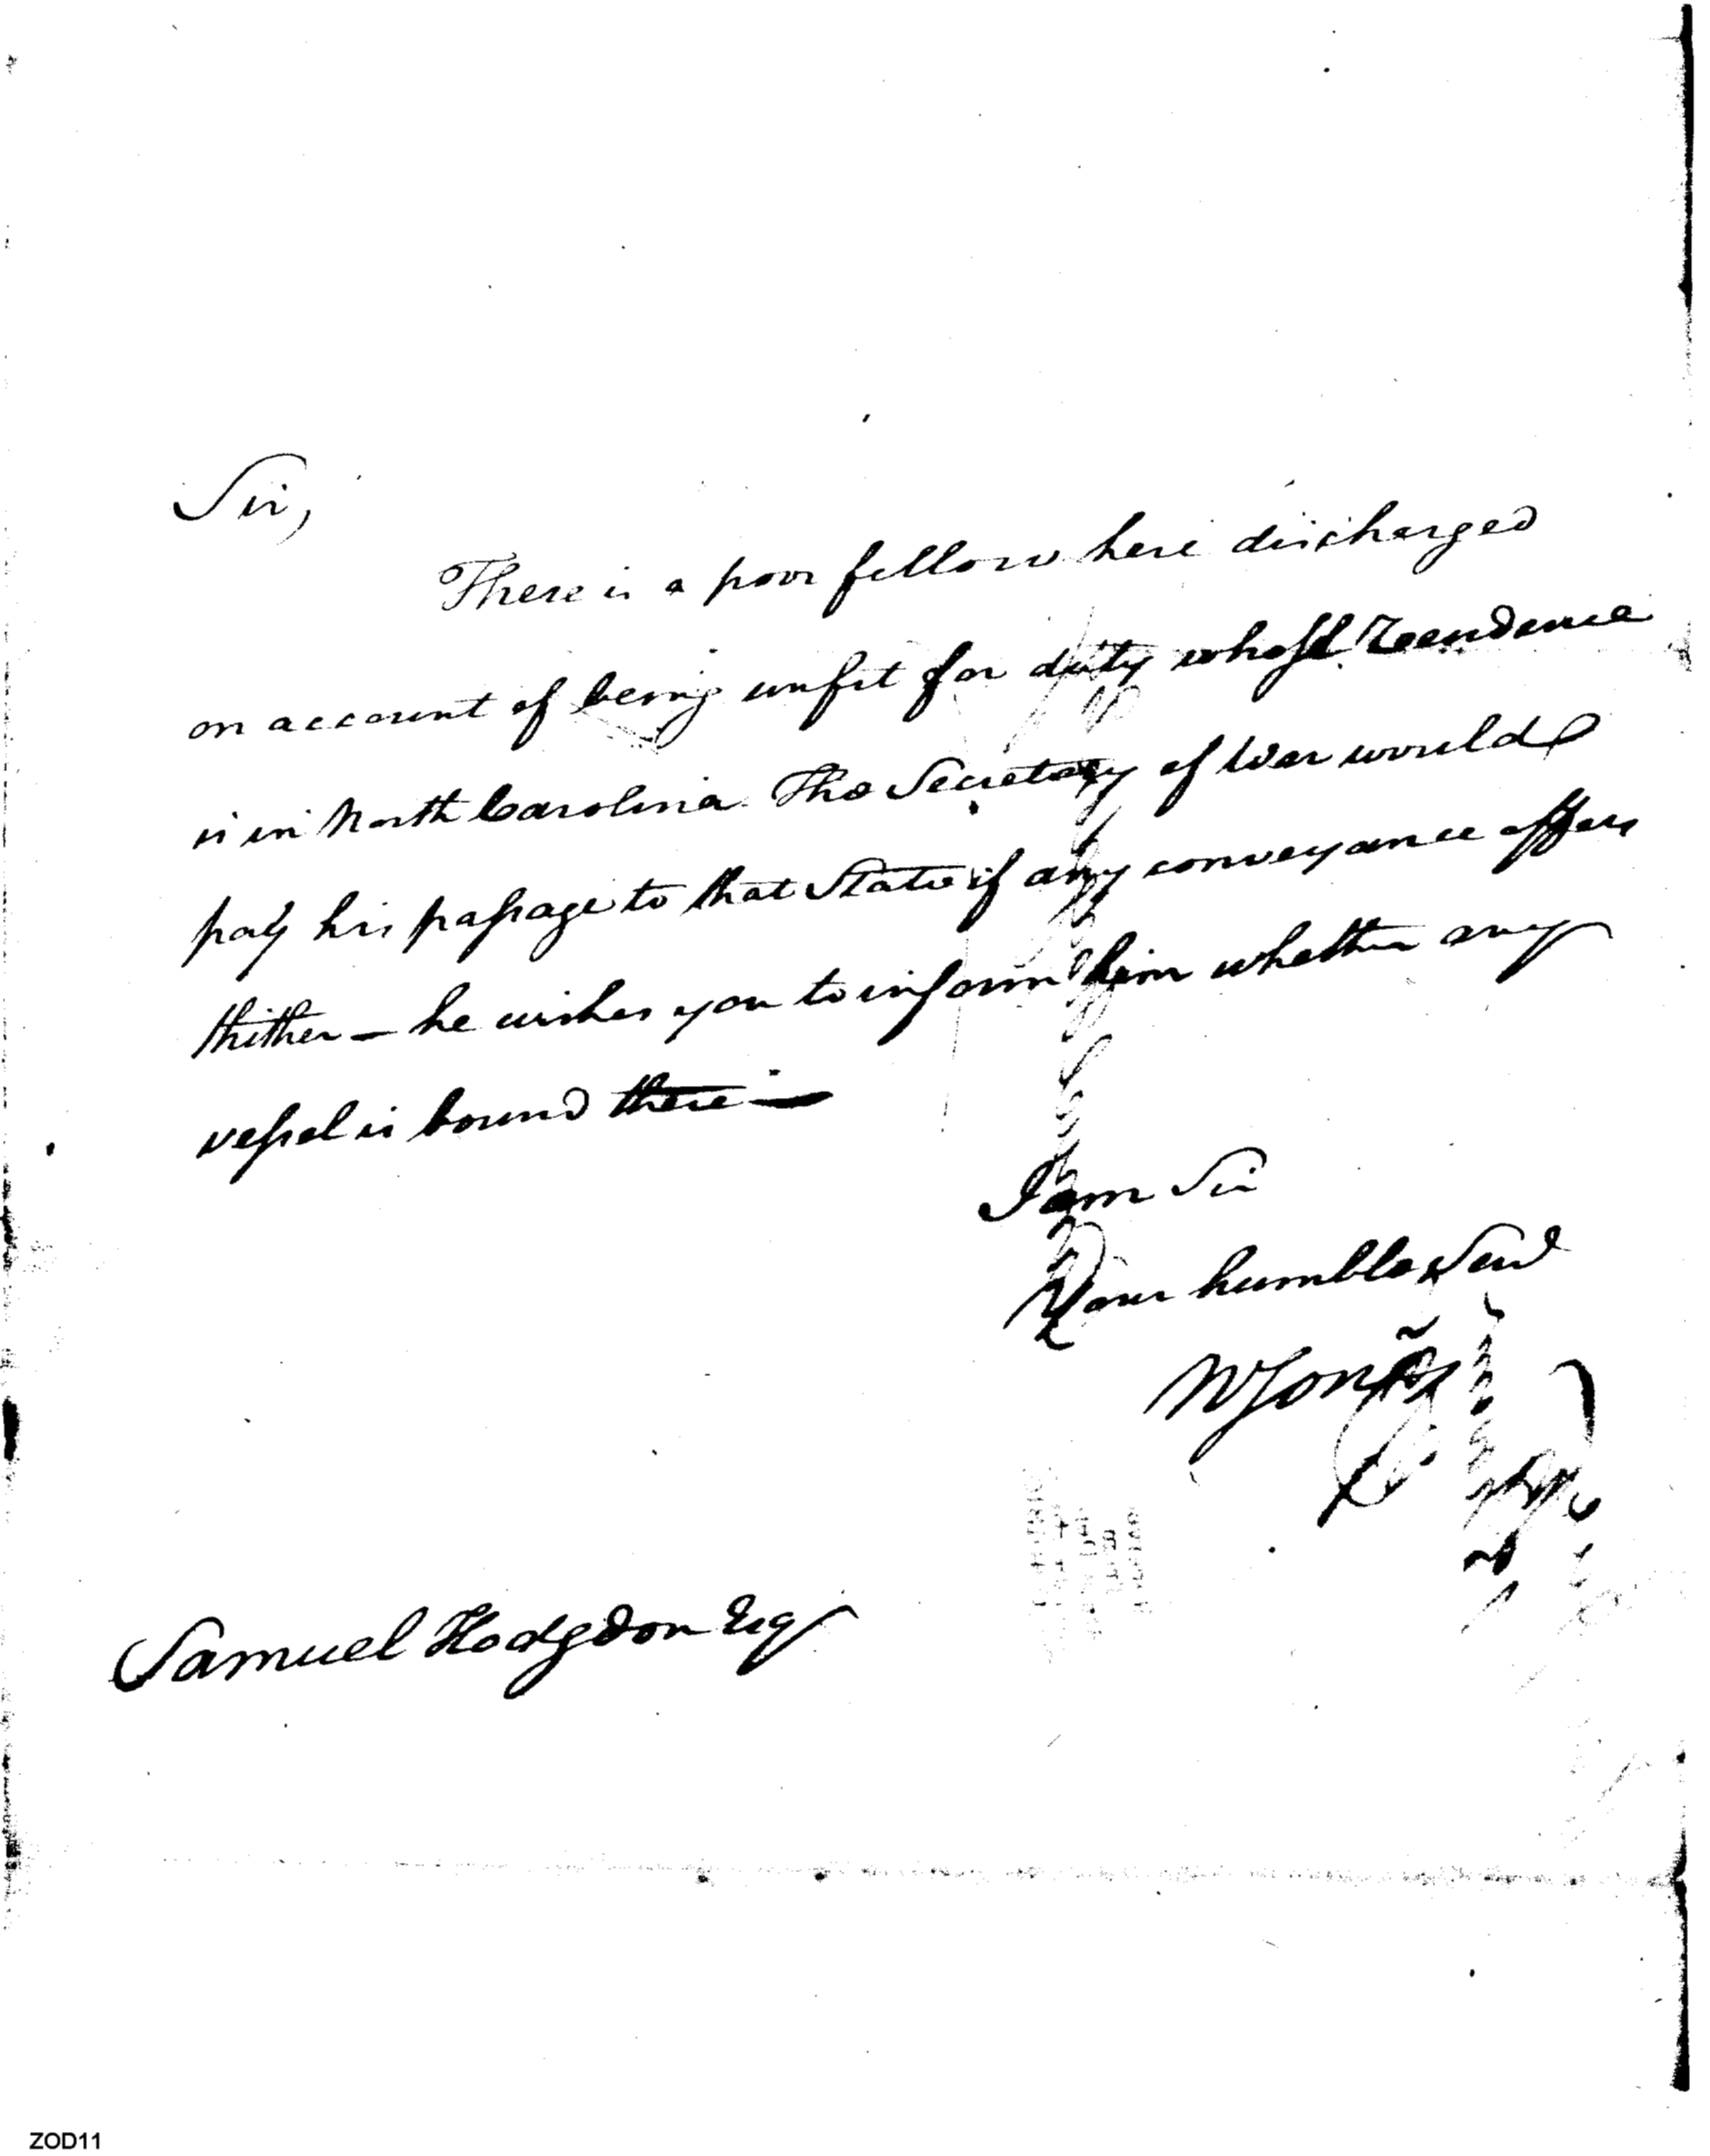 Sir,
There is a poor fellow here discharged
on account of being unfit for duty whose Residence
is in North Carolina. The Secretary of War would
pay his passage to that State if any conveyance offers
thither — he wishes you to inform him whether any
vessel is bound there —
I am Sir
Your humble Servt
W Jones
Samuel Hodgdon Esqr
ZOD11